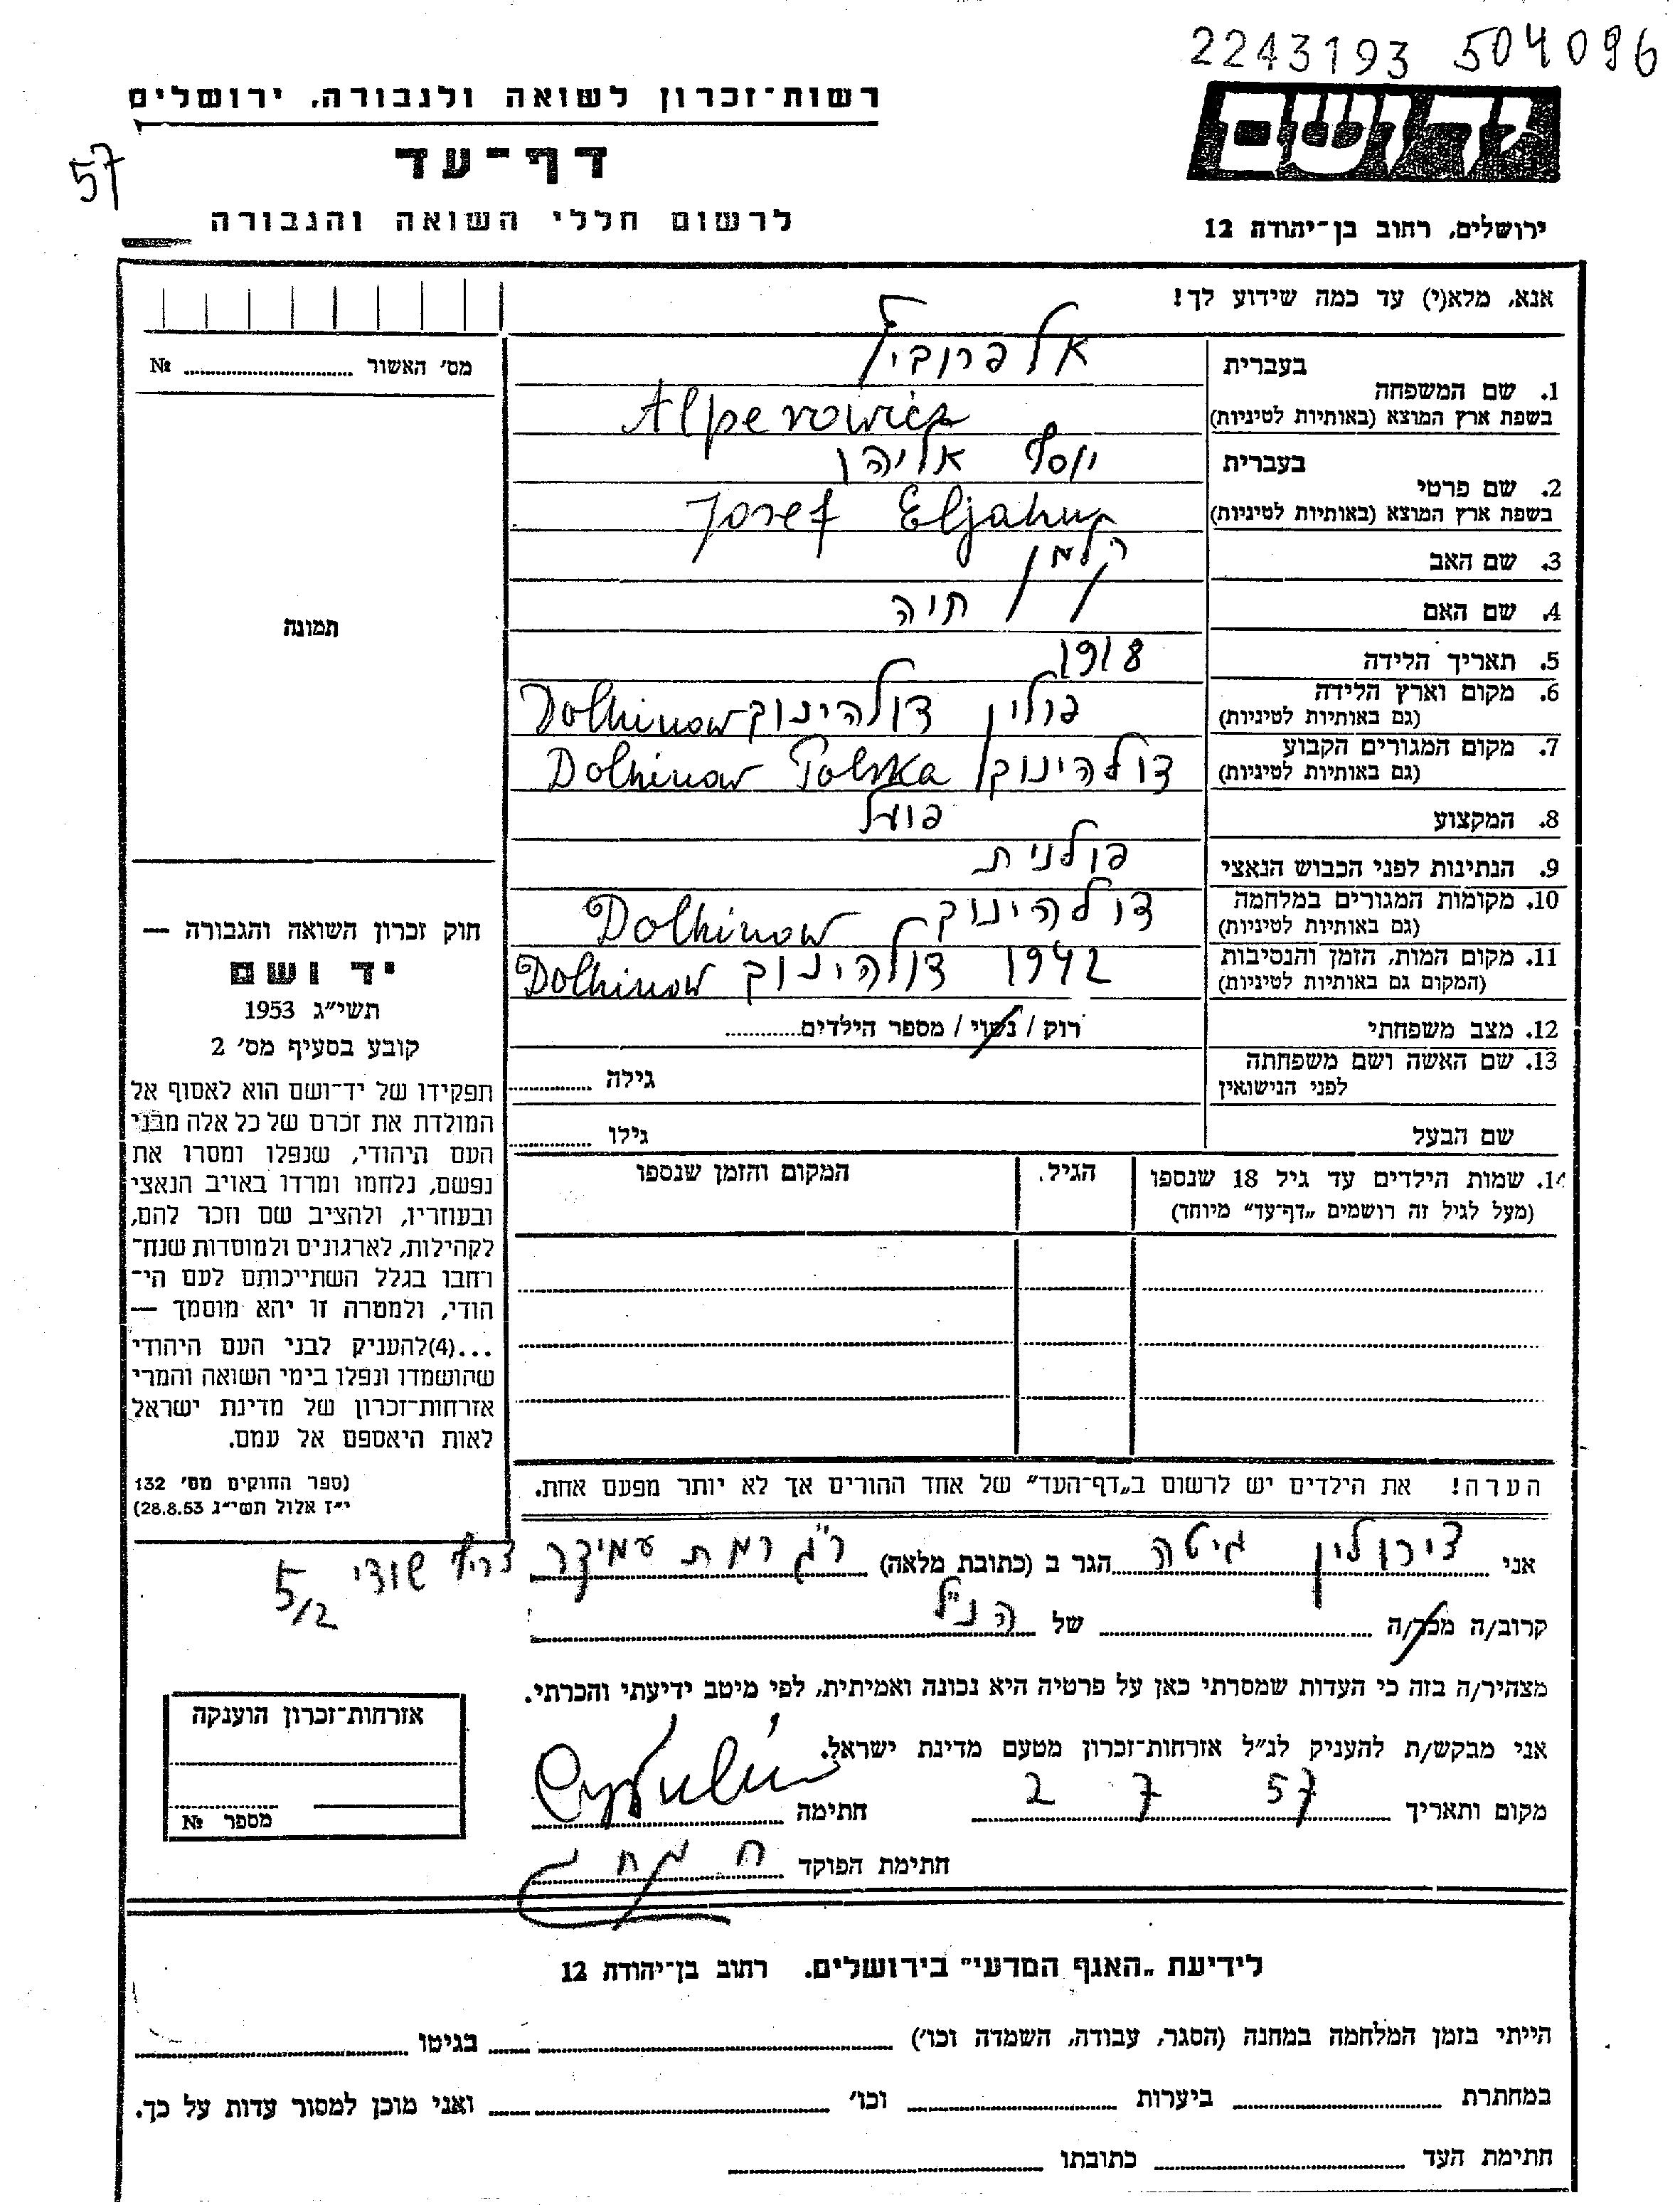 2243193 504096
ידושם
רשות־זכרון לשואה ולגבורה, ירושלים
57
דף־עד
לרשום חללי השואה והגבורה
ירושלים, רחוב בן־יהודה 12
אנא, מלא(י) עד כמה שידוע לך!
מס' האשור ........ №
תמונה
בעברית אלפרוביץ
1. שם המשפחה
בשפת ארץ המוצא (באותיות לטיניות) Alperowicz
בעברית יוסף אליהו
2. שם פרטי
בשפת ארץ המוצא (באותיות לטיניות) Josef Eljahu
3. שם האב קלמן
4. שם האם חיה
5. תאריך הלידה 1918
6. מקום וארץ הלידה פולין דולהינוב Dolhinow
(גם באותיות לטיניות)
7. מקום המגורים הקבוע דולהינוב Dolhinow Polska
(גם באותיות לטיניות)
8. המקצוע פועל
9. הנתינות לפני הכבוש הנאצי פולנית
10. מקומות המגורים במלחמה דולהינוב Dolhinow
(גם באותיות לטיניות)
11. מקום המות, הזמן והנסיבות 1942 דולהינוב Dolhinow
(המקום גם באותיות לטיניות)
12. מצב משפחתי רוק / נשוי / מספר הילדים........
13. שם האשה ושם משפחתה גילה ........
לפני הנישואין
שם הבעל גילו ........
14. שמות הילדים עד גיל 18 שנספו הגיל. המקום והזמן שנספו
(מעל לגיל זה רושמים „דף־עד" מיוחד)
חוק זכרון השואה והגבורה —
יד ושם
תשי"ג 1953
קובע בסעיף מס' 2
תפקידו של יד־ושם הוא לאסוף אל
המולדת את זכרם של כל אלה מבני
העם היהודי, שנפלו ומסרו את
נפשם, נלחמו ומרדו באויב הנאצי
ובעוזריו, ולהציב שם וזכר להם,
לקהילות, לארגונים ולמוסדות שנח־
רחבו בגלל השתייכותם לעם הי־
הודי, ולמטרה זו יהא מוסמך —
...(4)להעניק לבני העם היהודי
שהושמדו ונפלו בימי השואה והמרי
אזרחות־זכרון של מדינת ישראל
לאות היאספם אל עמם.
(ספר החוקים מס' 132
י"ז אלול תשי"ג 28.8.53)
הערה! את הילדים יש לרשום ב„דף־העד" של אחד ההורים אך לא יותר מפעם אחת.
אני צירולין גיטה הגר ב (כתובת מלאה) ר"ג רמת עמידר
5/2
קרוב/ה מכר/ה ........ של הנ"ל
מצהיר/ה בזה כי העדות שמסרתי כאן על פרטיה היא נכונה ואמיתית, לפי מיטב ידיעתי והכרתי.
אני מבקש/ת להעניק לנ"ל אזרחות־זכרון מטעם מדינת ישראל.
מקום ותאריך 57 7 2 חתימה
חתימת הפוקד
אזרחות־זכרון הוענקה
מספר №
לידיעת „האגף המדעי" בירושלים. רחוב בן־יהודה 12
הייתי בזמן המלחמה במחנה (הסגר, עבודה, השמדה וכו') ........ בגיטו ........
במחתרת ........ ביערות ........ וכו' ........ ואני מוכן למסור עדות על כך.
חתימת העד ........ כתובתו ........